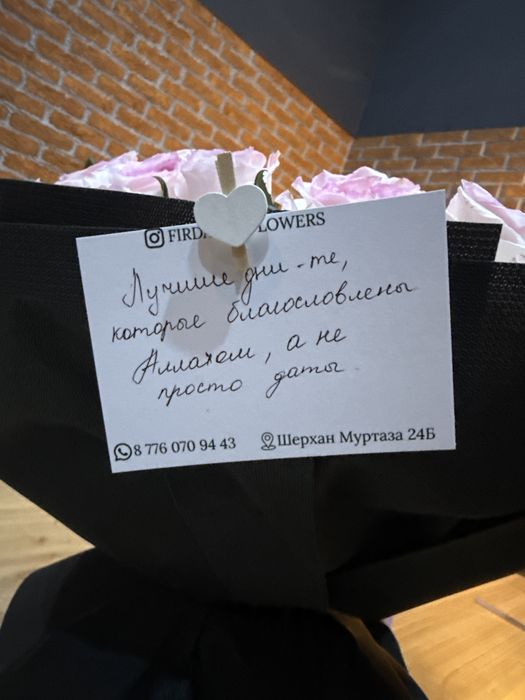 FIRD LOWERS
Лучшие дни - те,
которые благословлены
Аллахом, а не
просто даты
8 776 070 94 43
Шерхан Муртаза 24Б